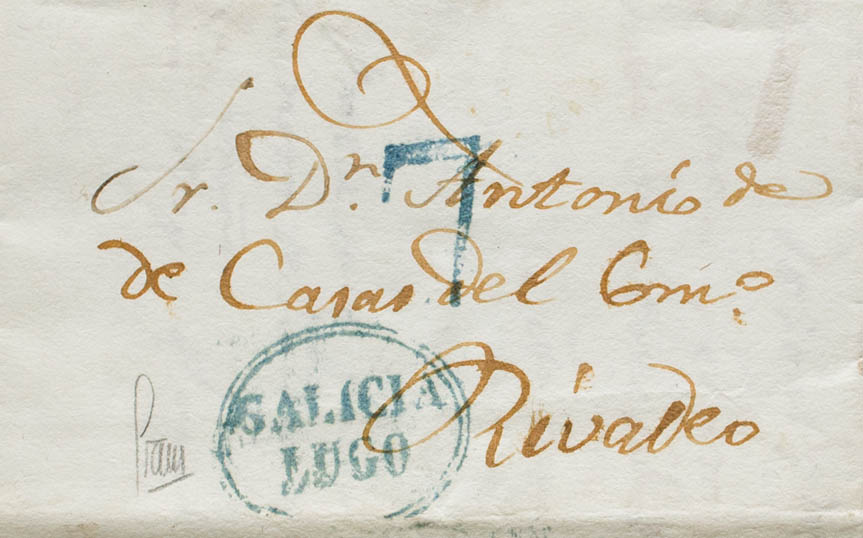 Sr. Dn. Antonio de
de Casas del Cmo.
7
Rivadeo
GALICIA
LUGO